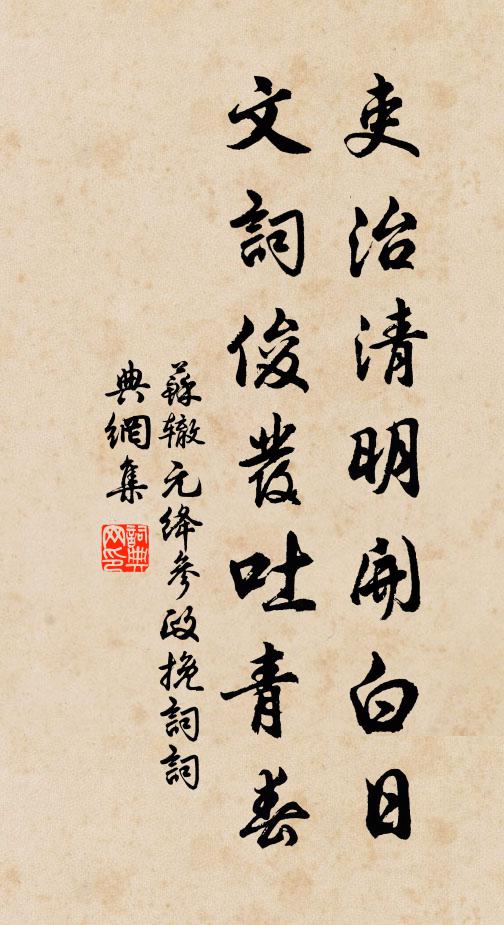 吏治清明開白日
文詞俊發吐青春
蘇轍元絳參政挽詞詞
典網集
詞典网印